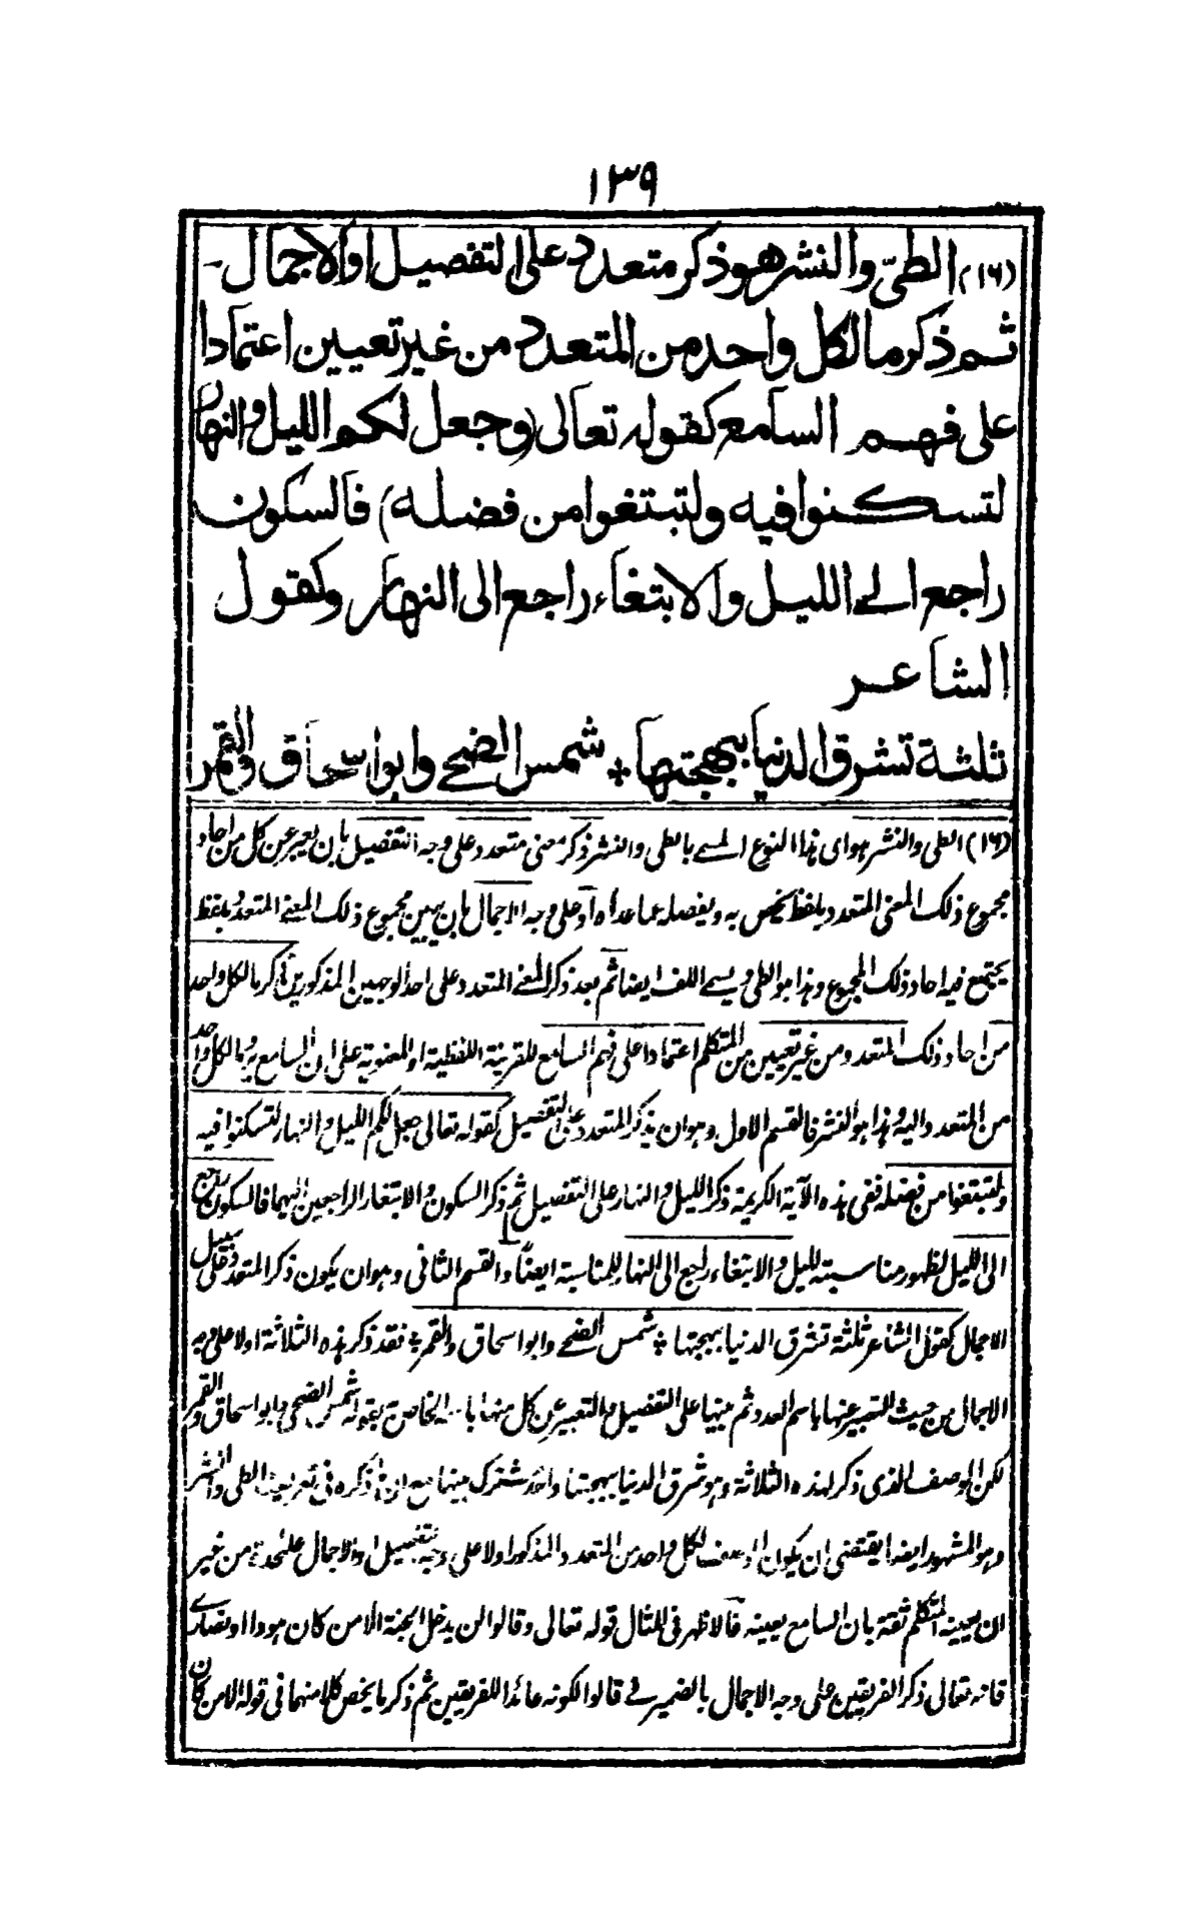 ١٣٩
(١٦) الطىّ والنشر هو ذكر متعدد على التفصيل او الاجمال
ثم ذكر ما لكل واحد من المتعدد من غير تعيين اعتمادا
على فهم السامع كقوله تعالى (وجعل لكم الليل والنهار
لتسكنوا فيه ولتبتغوا من فضله) فالسكون
راجع الى الليل والابتغاء راجع الى النهار وكقول
الشاعر
ثلثة تشرق الدنيا ببهجتها * شمس الضحى وابو اسحاق والقمر
(١٦) الطى والنشر هو اى هذا النوع المسمى بالطى والنشر ذكر معنى متعدد على وجه التفصيل بان يعبر عن كل من احاد
مجموع ذلك المعنى المتعدد بلفظ يخص به ويفصله عما عداه او على وجه الاجمال بان يبين مجموع ذلك المعنى المتعدد بلفظ
يجتمع فيه احاد ذلك المجموع وهذا هو الطى ويسمى اللف ايضا ثم بعد ذكر المعنى المتعدد على احد الوجهين المذكورين ذكر ما لكل واحد
من احاد ذلك المتعدد ومن غير تعيين من المتكلم اعتمادا على فهم السامع للقرينة اللفظية او المعنوية على ان السامع يرد ما لكل واحد
من المتعدد اليه وهذا هو النشر فالقسم الاول وهو ان يذكر المتعدد على التفصيل كقوله تعالى جعل لكم الليل والنهار لتسكنوا فيه
ولتبتغوا من فضله ففى هذه الآية الكريمة ذكر الليل والنهار على التفصيل ثم ذكر السكون والابتغاء الراجعين اليهما فالسكون راجع
الى الليل لظهور مناسبته لليل والابتغاء راجع الى النهار للمناسبة ايضًا والقسم الثانى وهو ان يكون ذكر المتعدد على سبيل
الاجمال كقول الشاعر ثلثة تشرق الدنيا ببهجتها * شمس الضحى وابو اسحاق والقمر * فقد ذكر هذه الثلاثة اولا على وجه
الاجمال من حيث التعبير عنها باسم العدد ثم بينها على التفصيل والتعبير عن كل منها الخاص به بقوله شمس الضحى وابو اسحاق والقمر
لكن الوصف الذى ذكر لهذه الثلاثة وهو شرق الدنيا ببهجتها واحد مشترك بينها مع ان ما ذكره فى تعريف الطى والنشر
وهو المشهور ايضا يقتضى ان يكون الوصف لكل واحد من المتعدد المذكور اولا على وجه التفصيل او الاجمال علىحدة من غير
ان يعينه المتكلم ثقة بان السامع يعينه فالاظهر فى المثال قوله تعالى وقالوا لن يدخل الجنة الا من كان هودا او نصارى
فانه تعالى ذكر الفريقين على وجه الاجمال بالضمير فى قالوا لكونه عائدا للفريقين ثم ذكر ما يخص كلا منهما فى قوله الا من كان